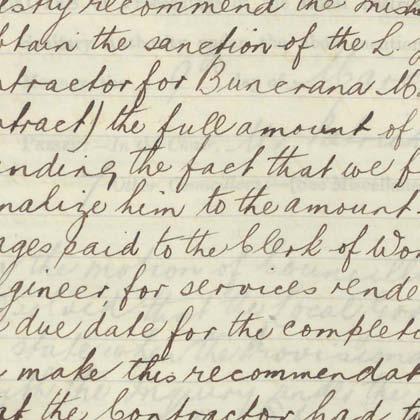 recommend the
btain the sanction of the L
ntractor for Buncrana M
ntract) the full amount of
nding the fact that we f
nalize him to the amount
ages paid to the Clerk of Wor
gineer, for services rende
due date for the completi
make this recommendat
at the Contractor had